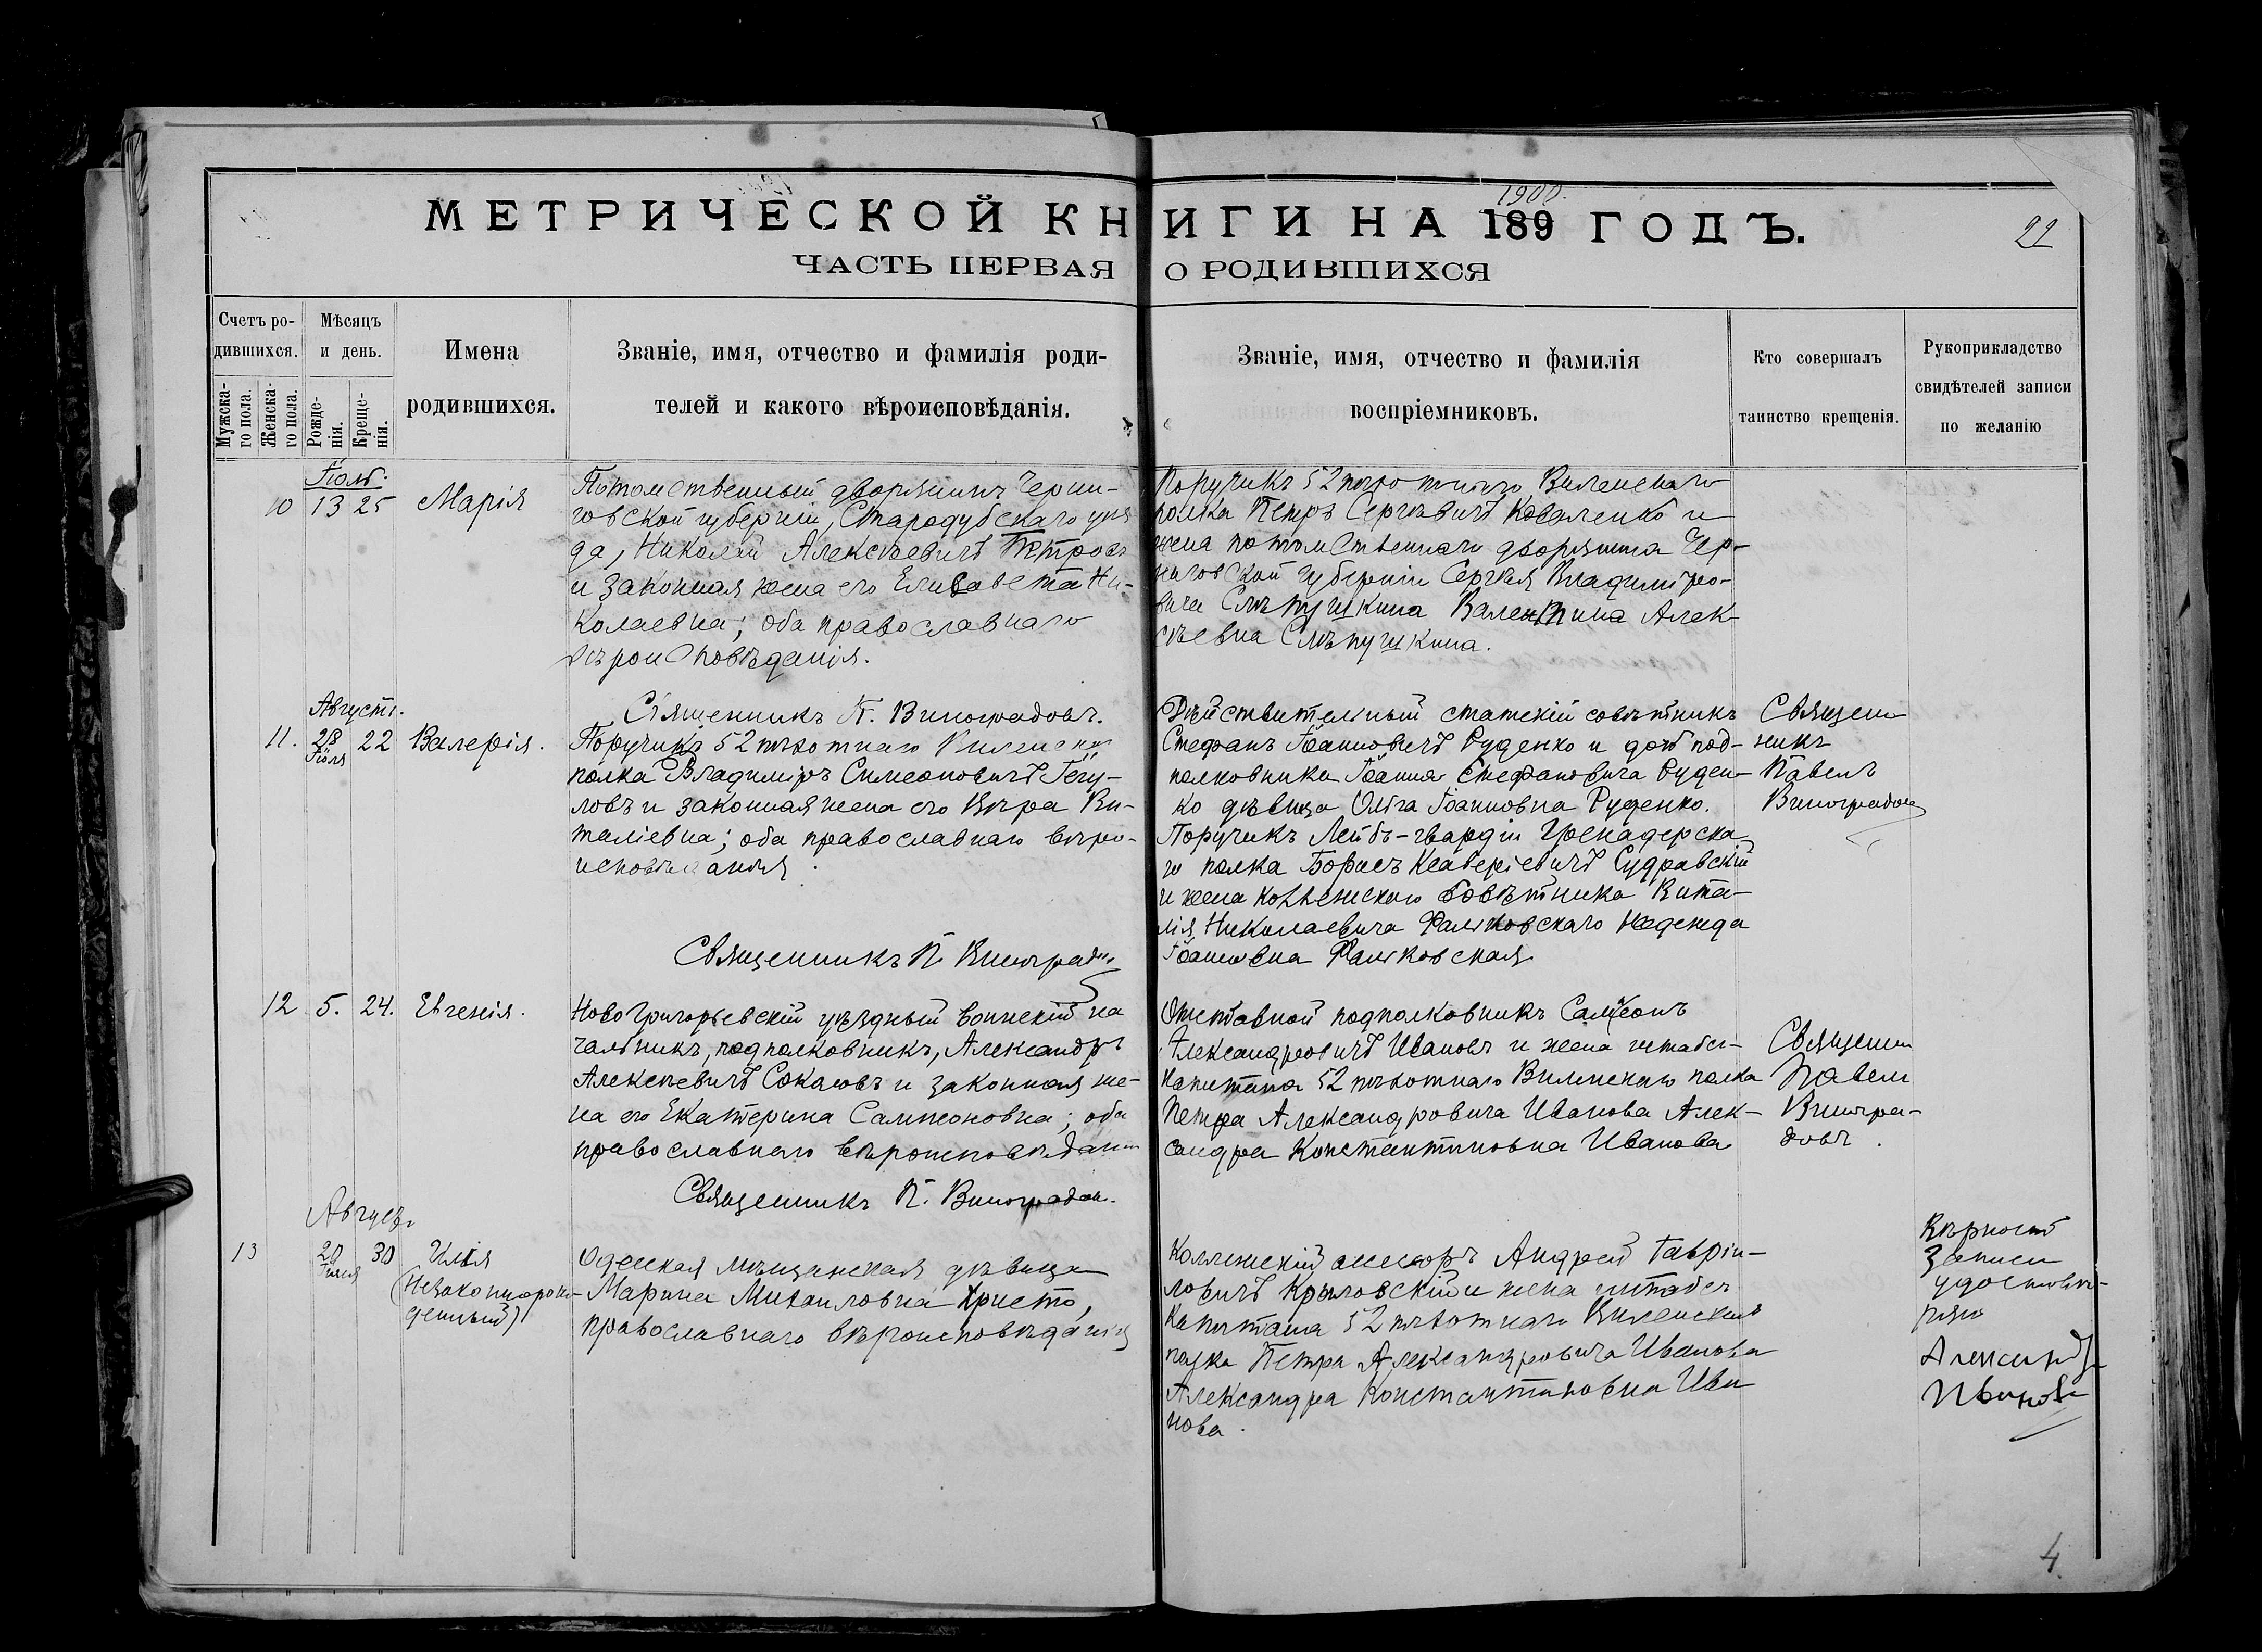 1900.
МЕТРИЧЕСКОЙ КНИГИ НА 189 ГОДЪ.
22
ЧАСТЬ ПЕРВАЯ О РОДИВШИХСЯ
Счетъ ро-
дившихся.
Мужска-
го пола.
Женска-
го пола.
Мѣсяцъ
и день.
Рожде-
нія.
Креще-
нія.
Имена
родившихся.
Званіе, имя, отчество и фамилія роди-
телей и какого вѣроисповѣданія.
Званіе, имя, отчество и фамилія
воспріемниковъ.
Кто совершалъ
таинство крещенія.
Рукоприкладство
свидѣтелей записи
по желанію
Іюль.
10 13 25 Марія
Потомственный дворянинъ Черни-
говской губерніи, Стародубскаго уѣз
да, Николай Алексѣевичъ Петровъ
и законная жена его Елисавета Ни-
колаевна; оба православнаго
вѣроисповѣданія.
Священникъ П. Виноградовъ.
Поручикъ 52 пѣхотнаго Виленскаго
полка Петръ Сергѣевичъ Коваленко и
жена потомственнаго дворянина Чер-
ниговской губерніи Сергѣя Владиміро-
вича Слѣпушкина Валентина Алек-
сѣевна Слѣпушкина.
Августъ.
11. 28 Іюля 22 Валерія.
Поручикъ 52 пѣхотнаго Виленскаго
полка Владиміръ Симеоновичъ
ловъ и законная жена его Вѣра Ви-
таліевна; оба православнаго вѣро-
исповѣданія.
Священникъ П. Виноградовъ
Дѣйствительный статскій совѣтникъ
Стефанъ Іоанновичъ Руденко и дочь под-
полковника Іоанна Стефановича Руден-
ко дѣвица Ольга Іоанновна Руденко.
Поручикъ Лейбъ-гвардіи Гренадерска
го полка Борисъ Ксаверіевичъ Судравскій
и жена коллежскаго совѣтника Вита-
лія Николаевича Фальковскаго Надежда
Іоанновна Фальковская.
Священ
никъ
Павелъ
Виноградовъ
12 5. 24. Евгенія.
Новогригорьевскій уѣздный воинскій на
чальникъ, подполковникъ, Александръ
Алексѣевичъ Соколовъ и законная же-
на его Екатерина Сампсоновна; оба
православнаго вѣроисповѣданія
Священникъ П. Виноградовъ.
Отставной подполковникъ Сампсонъ
Александровичъ Ивановъ и жена штабсъ-
капитана 52 пѣхотнаго Виленскаго полка
Петра Александровича Иванова Алек-
сандра Константиновна Иванова
Священник
Павелъ
Виногра-
довъ.
Августъ
13 20 Іюля 30 Илія
(Незаконнорож-
денный)
Одесская мѣщанская дѣвица
Марина Михаиловна Христо,
православнаго вѣроисповѣданія
Коллежскій асессоръ Андрей Гавріи-
ловичъ Крыловскій и жена штабсъ
капитана 52 пѣхотнаго Виленскаго
полка Петра Александровича Иванова
Александра Константиновна Ива
нова.
Вѣрность
записи
удостовѣ-
ряю
Александръ
Ивановъ
4